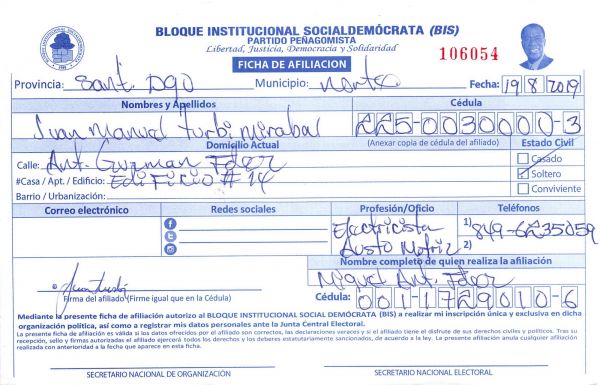 BLOQUE INSTITUCIONAL SOCIALDEMÓCRATA (BIS)
PARTIDO PEÑAGOMISTA
Libertad, Justicia, Democracia y Solidaridad
FICHA DE AFILIACION
106054
Provincia: Sant. Dgo Municipio: Norte Fecha: 19/8/2019
Nombres y Apellidos Cédula
Juan Manuel Turbi Mirabal 225-0030000-3
Domicilio Actual (Anexar copia de cédula del afiliado) Estado Civil
Calle: Ant. Guzman Fdez Casado
#Casa / Apt. / Edificio: Edificio #14 Soltero
Barrio / Urbanización: Conviviente
Correo electrónico Redes sociales Profesión/Oficio Teléfonos
Electricista 1) 849-6235059
Austo Motriz 2)
Nombre completo de quien realiza la afiliación
Miguel Ant. Fdez
Firma del afiliado (Firme igual que en la Cédula) Cédula: 001-1729010-6
Mediante la presente ficha de afiliación autorizo al BLOQUE INSTITUCIONAL SOCIAL DEMÓCRATA (BIS) a realizar mi inscripción única y exclusiva en dicha
organización política, así como a registrar mis datos personales ante la Junta Central Electoral.
La presente ficha de afiliación es válida si los datos ofrecidos por el afiliado son correctos, las declaraciones veraces y si el afiliado tiene el disfrute de sus derechos civiles y políticos. Tras su
recepción, sello y firmas autorizadas el afiliado ejercerá todos los derechos y los deberes estatutariamente sancionados, de acuerdo a la ley. La presente afiliación anula cualquier afiliación
realizada con anterioridad a la fecha que aparece en esta ficha.
SECRETARIO NACIONAL DE ORGANIZACIÓN SECRETARIO NACIONAL ELECTORAL